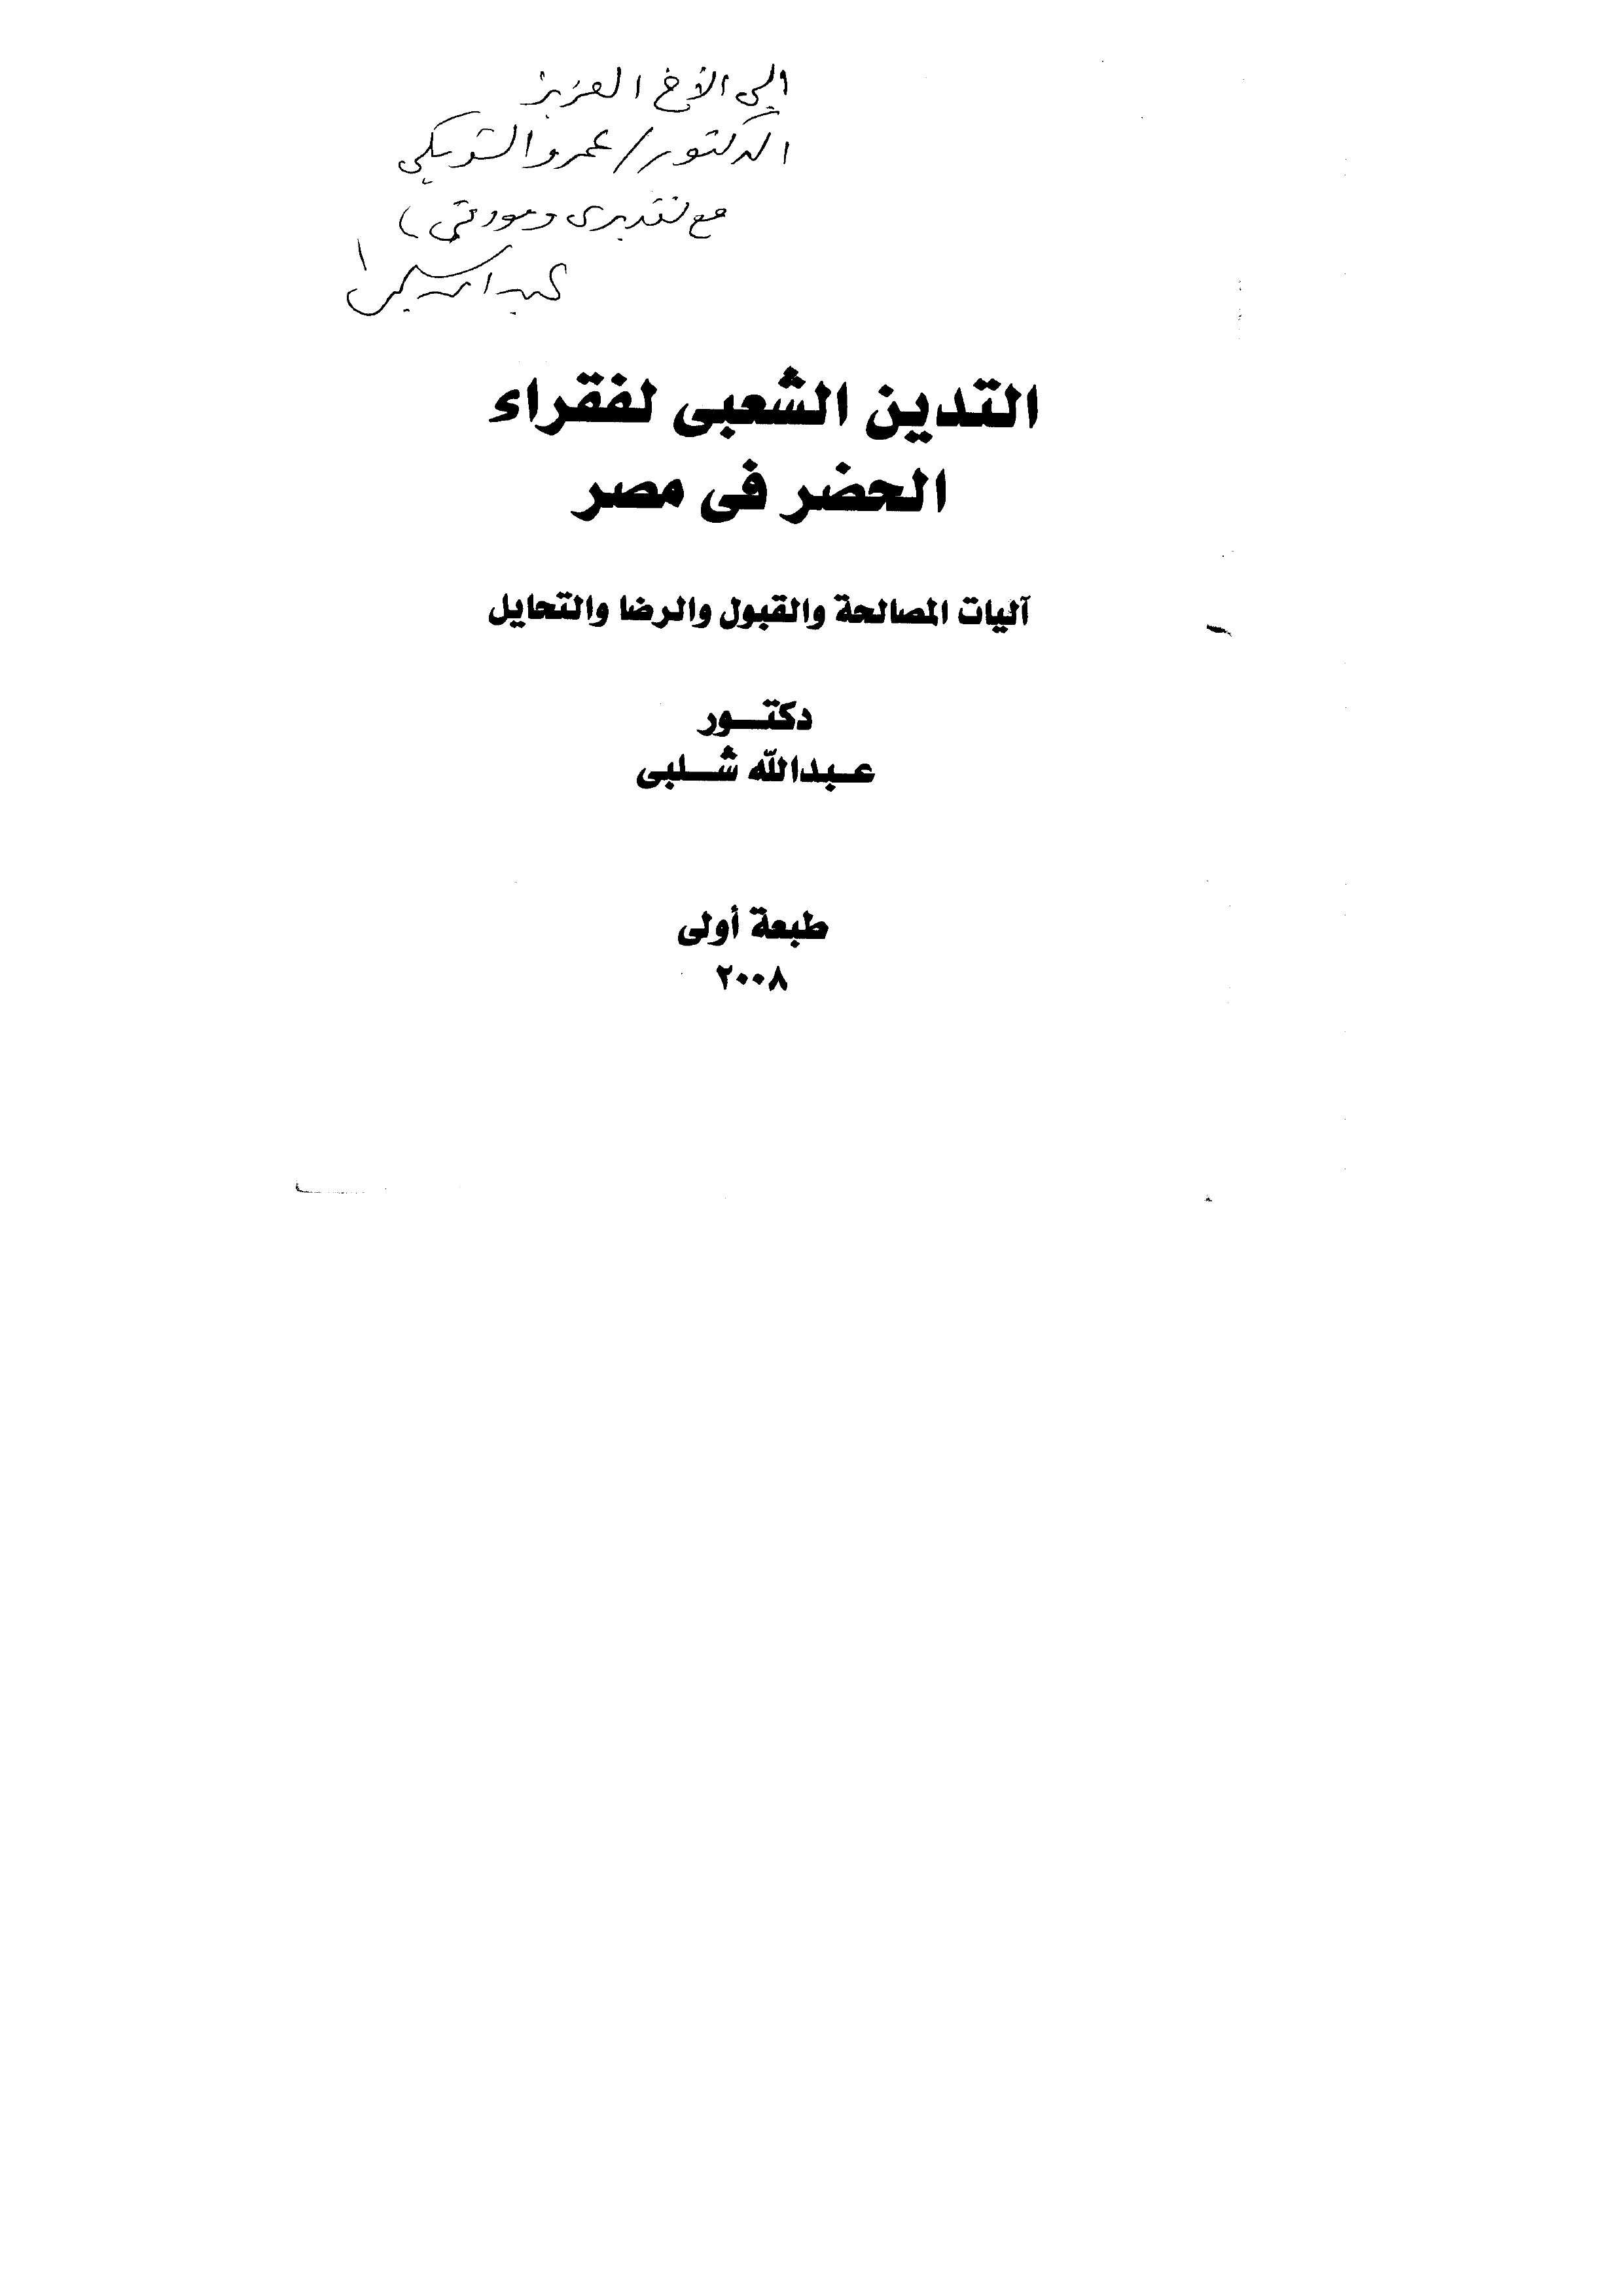 إلى الأخ العزيز
الدكتور / عمرو الشوبكى
مع تقديرى ومودتى
عبدالله شلبى
التدين الشعبى لفقراء
الحضر فى مصر
آليات المصالحة والقبول والرضا والتحايل
دكتــور
عـبدالله شــلبى
طبعة أولى
٢٠٠٨